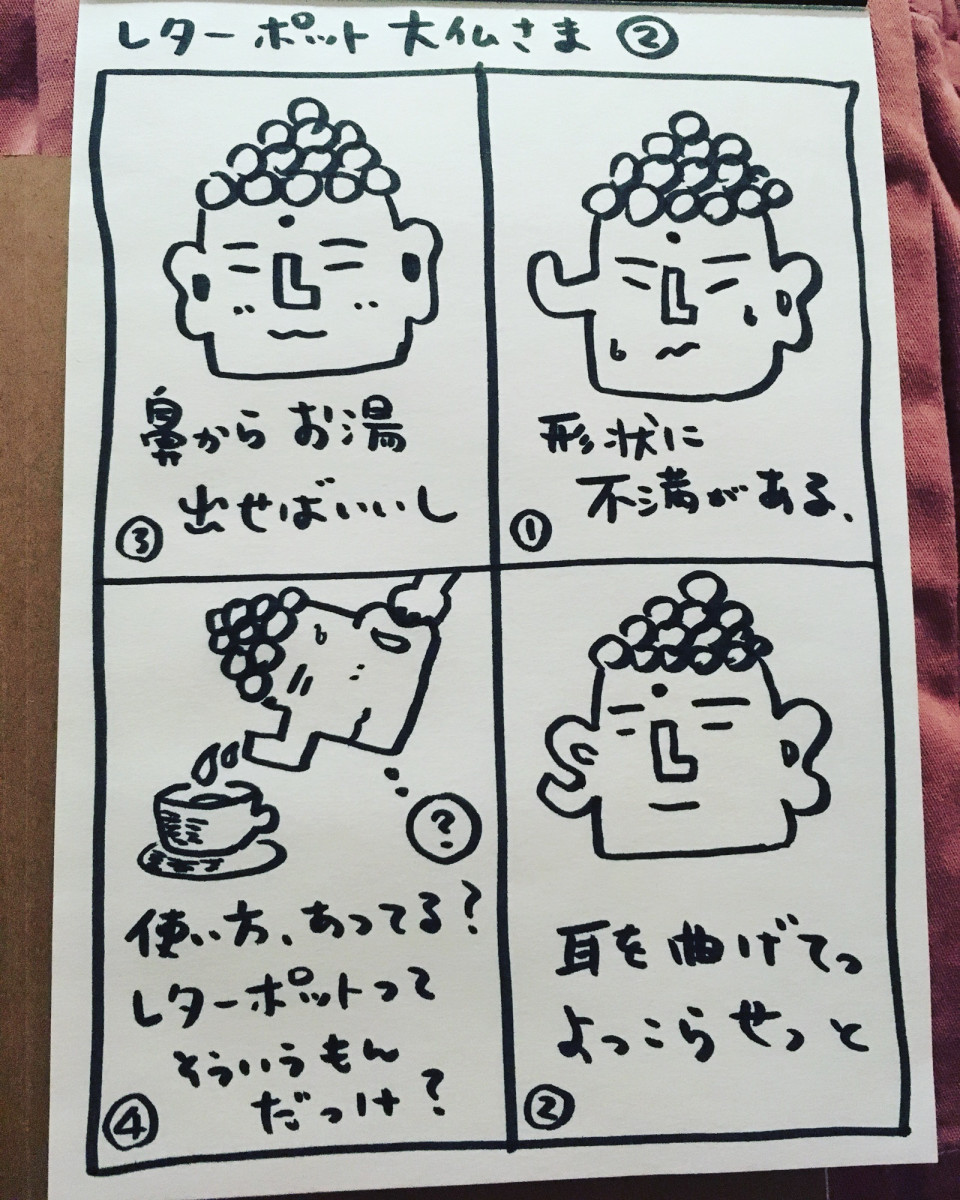 レターポット大仏さま ②
形状に
不満がある、
①
耳を曲げてっ
よっこらせっと
②
鼻からお湯
出せばいいし
③
?
使い方、あってる?
レターポットって
そういうもん
だっけ?
④